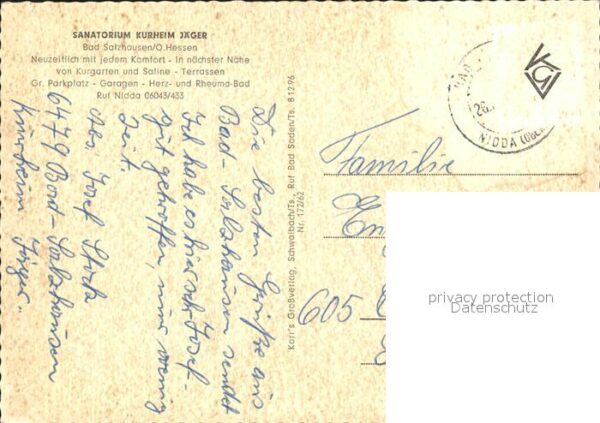 SANATORIUM KURHEIM JÄGER
Bad Salzhausen/O.Hessen
Neuzeitlich mit jedem Komfort - In nächster Nähe
von Kurgarten und Saline - Terrassen
Gr. Parkplatz - Garagen - Herz- und Rheuma-Bad
Ruf Nidda 06043/433
Die besten Grüße aus
Bad-Salzhausen sendet
Josef.
Ich habe es hier sehr
gut getroffen, nur wenig
Zeit.
Abs. Josef
6479 Bad-Salzhausen
Kurheim Jäger.
Korr's Großverlag, Schwalbach/Ts., Ruf Bad Soden/Ts. 8 12 96
Nr. 172/62
NIDDA
Familie
605
privacy protection
Datenschutz